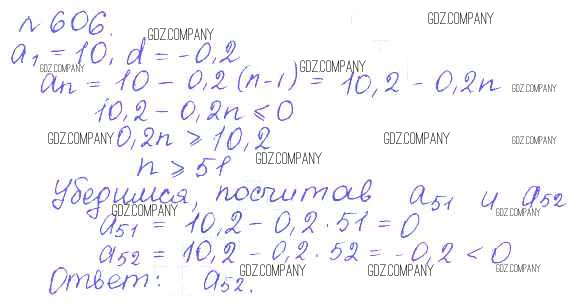 № 606.
GDZ.COMPANY GDZ.COMPANY
a₁ = 10, d = -0,2
GDZ.COMPANY GDZ.COMPANY
aₙ = 10 - 0,2 (n-1) = 10,2 - 0,2n GDZ.COMPANY
10,2 - 0,2n ⩽ 0
GDZ.COMPANY 0,2n ⩾ 10,2 GDZ.COMPANY GDZ.COMPANY
n ⩾ 51 GDZ.COMPANY
Убедимся, посчитав a₅₁ и a₅₂
GDZ.COMPANY GDZ.COMPANY
a₅₁ = 10,2 - 0,2 · 51 = 0
a₅₂ = 10,2 - 0,2 · 52 = -0,2 < 0
GDZ.COMPANY GDZ.COMPANY GDZ.COMPANY
Ответ: a₅₂.